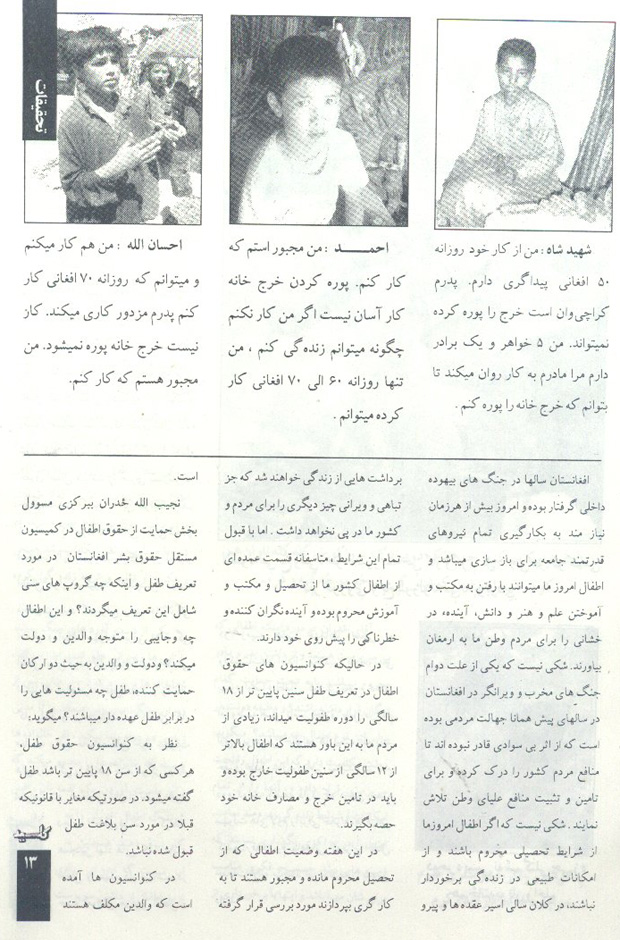 تحقیقات
شهید شاه : من از کار خود روزانه
۵۰ افغانی پیداگری دارم. پدرم
کراچی‌وان است خرج را پوره کرده
نمیتواند. من ۵ خواهر و یک برادر
دارم مرا مادرم به کار روان میکند تا
بتوانم که خرج خانه را پوره کنم .
احمـــد : من مجبور استم که
کار کنم. پوره کردن خرج خانه
کار آسان نیست اگر من کار نکنم
چگونه میتوانم زنده گی کنم ، من
تنها روزانه ۶۰ الی ۷۰ افغانی کار
کرده میتوانم .
احسان الله : من هم کار میکنم
و میتوانم که روزانه ۷۰ افغانی کار
کنم پدرم مزدور کاری میکند. کار
نیست خرج خانه پوره نمیشود. من
مجبور هستم که کار کنم.
افغانستان سالها در جنگ های بیهوده
داخلی گرفتار بوده و امروز بیش از هرزمان
نیاز مند به بکارگیری تمام نیروهای
قدرتمند جامعه برای باز سازی میباشد و
اطفال امروز ما میتوانند با رفتن به مکتب و
آموختن علم و هنر و دانش، آینده، در
خشانی را برای مردم وطن ما به ارمغان
بیاورند. شکی نیست که یکی از علت دوام
جنگ های مخرب و ویرانگر در افغانستان
در سالهای پیش همانا جهالت مردمی بوده
است که از اثر بی سوادی قادر نبوده اند تا
منافع مردم کشور را درک کرده و برای
تامین و تثبیت منافع علیای وطن تلاش
نمایند . شکی نیست که اگر اطفال امروزما
از شرایط تحصیلی محروم باشند و از
امکانات طبیعی در زنده گی برخوردار
نباشند، در کلان سالی اسیر عقده ها و پیرو
برداشت هایی از زندگی خواهند شد که جز
تباهی و ویرانی چیز دیگری را برای مردم و
کشور ما در پی نخواهد داشت . اما با قبول
تمام این شرایط ، متاسفانه قسمت عمده ای
از اطفال کشور ما از تحصیل و مکتب و
آموزش محروم بوده و آینده نگران کننده و
خطرناکی را پیش روی خود دارند.
در حالیکه کنوانسیون های حقوق
اطفال در تعریف طفل سنین پایین تر از ۱۸
سالگی را دوره طفولیت میداند، زیادی از
مردم ما به این باور هستند که اطفال بالاتر
از ۱۲ سالگی از سنین طفولیت خارج بوده و
باید در تامین خرج و مصارف خانه خود
حصه بگیرند.
در این هفته وضعیت اطفالی که از
تحصیل محروم مانده و مجبور هستند تا به
کار گری بپردازند مورد بررسی قرار گرفته
است.
نجیب الله ځدران ببرکزی مسوول
بخش حمایت از حقوق اطفال در کمیسیون
مستقل حقوق بشر افغانستان در مورد
تعریف طفل و اینکه چه گروپ های سنی
شامل این تعریف میگردند؟ و این اطفال
چه وجایبی را متوجه والدین و دولت
میکند؟ ودولت و والدین به حیث دو ارکان
حمایت کننده، طفل چه مسئولیت هایی را
در برابر طفل عهده دار میباشند؟ میگوید:
نظر به کنوانسیون حقوق طفل،
هرکسی که از سن ۱۸ پایین تر باشد طفل
گفته میشود. در صورتیکه مغایر با قانونیکه
قبلا در مورد سن بلاغت طفل
قبول شده نباشد.
در کنوانسیون ها آمده
است که والدین مکلف هستند
کلید
۱۳